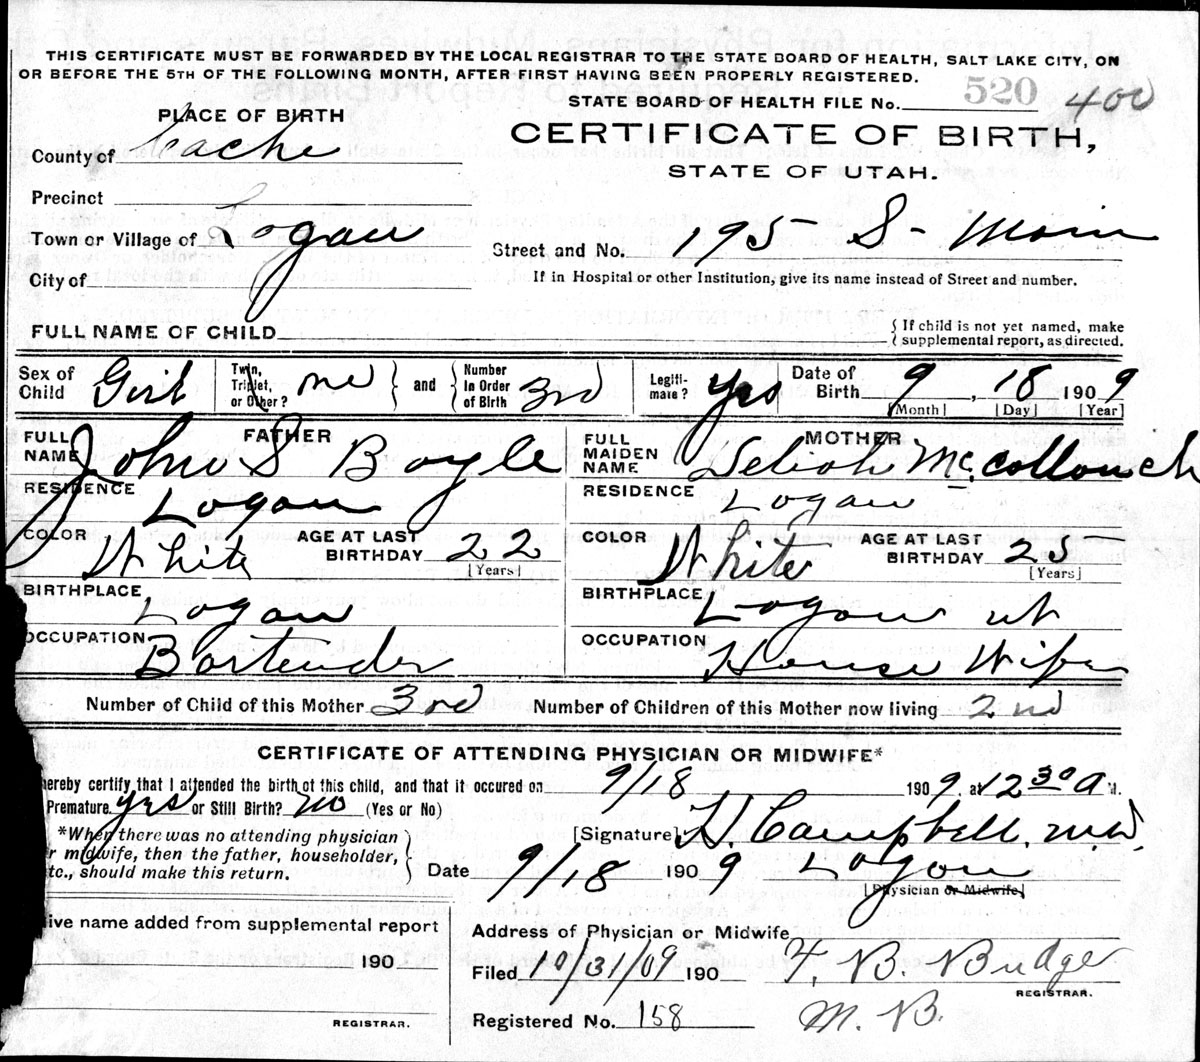 THIS CERTIFICATE MUST BE FORWARDED BY THE LOCAL REGISTRAR TO THE STATE BOARD OF HEALTH, SALT LAKE CITY, ON
OR BEFORE THE 5TH OF THE FOLLOWING MONTH, AFTER FIRST HAVING BEEN PROPERLY REGISTERED.
STATE BOARD OF HEALTH FILE No. 520 400
PLACE OF BIRTH
CERTIFICATE OF BIRTH,
STATE OF UTAH.
County of Cache
Precinct
Town or Village of Logan
Street and No. 195 S- Main
City of
If in Hospital or other Institution, give its name instead of Street and number.
FULL NAME OF CHILD
{ If child is not yet named, make
supplemental report, as directed.
Sex of Child Girl
Twin, Triplet, or Other? one } and { Number in Order of Birth 3rd
Legitimate? yes
Date of Birth 9, 18 1909
[Month] [Day] [Year]
FATHER
FULL NAME John S Boyle
RESIDENCE Logan
COLOR White AGE AT LAST BIRTHDAY 22
[Years]
BIRTHPLACE Logan
OCCUPATION Bartender
MOTHER
FULL MAIDEN NAME McCollouch
RESIDENCE Logan
COLOR White AGE AT LAST BIRTHDAY 25
[Years]
BIRTHPLACE Logan ut
OCCUPATION House Wife
Number of Child of this Mother 3rd Number of Children of this Mother now living 2nd
CERTIFICATE OF ATTENDING PHYSICIAN OR MIDWIFE*
hereby certify that I attended the birth of this child, and that it occured on 9/18 1909. at 12 30 A M.
Premature. yes or Still Birth? no (Yes or No)
*When there was no attending physician
r midwife, then the father, householder,
tc., should make this return.
[Signature] H. Campbell. M.D.
Date 9/18 1909 Logan
[Physician or Midwife]
ive name added from supplemental report
190
REGISTRAR.
Address of Physician or Midwife
Filed 10/31/09 190 F. B. Budge
REGISTRAR.
Registered No. 158 M. B.